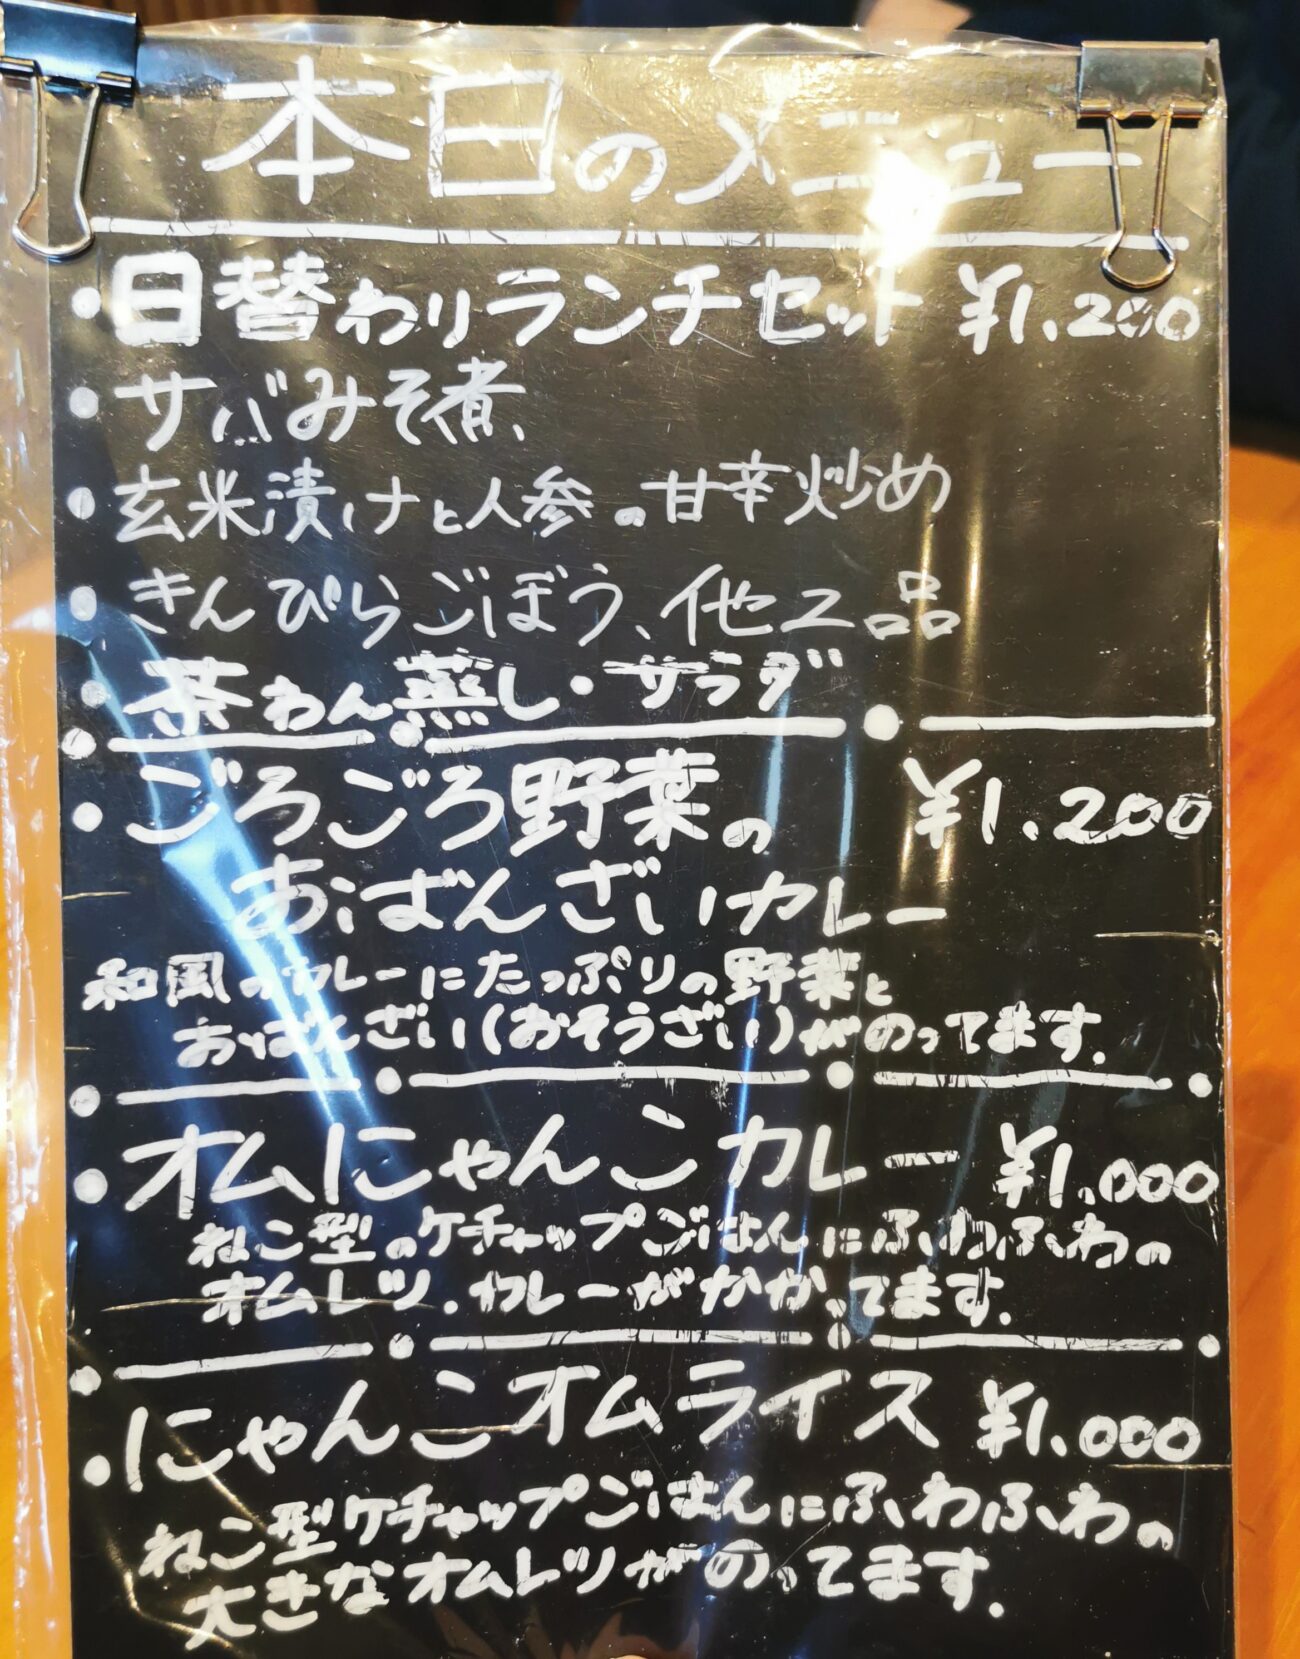 本日のメニュー
・日替わりランチセット ¥1,200
・サバみそ煮、
・玄米漬けナと人参の甘辛炒め
・きんぴらごぼう、他2品
・茶わん蒸し・サラダ
・ごろごろ野菜の ¥1,200
おばんざいカレー
和風のカレーにたっぷりの野菜と
おばんざい(おそうざい)がのってます.
・オムにゃんこカレー ¥1,000
ねこ型のケチャップごはんにふわふわの
オムレツ.カレーがかかってます.
・にゃんこオムライス ¥1,000
ねこ型ケチャップごはんにふわふわの
大きなオムレツがのってます.